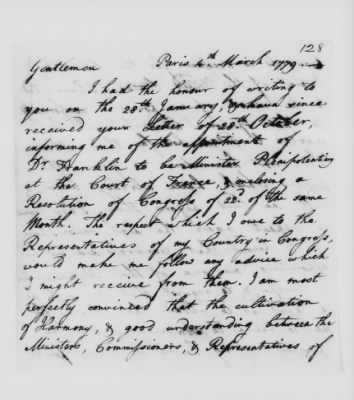 128
Gentlemen Paris 4th March 1779
I had the honour of writing to
you on the 28th January, & have since
received your Letter of 28th October,
informing me of the appointment of
Dr Franklin to be Minister Plenipotentiary
at the Court of France, & inclosing a
Resolution of Congress of 22d of the same
Month. The respect which I owe to the
Representatives of my Country in Congress,
would make me follow any advice which
I might receive from them. I am most
perfectly convinced that the cultivation
of Harmony, & good understanding between the
Ministers, Commissioners, & Representatives of